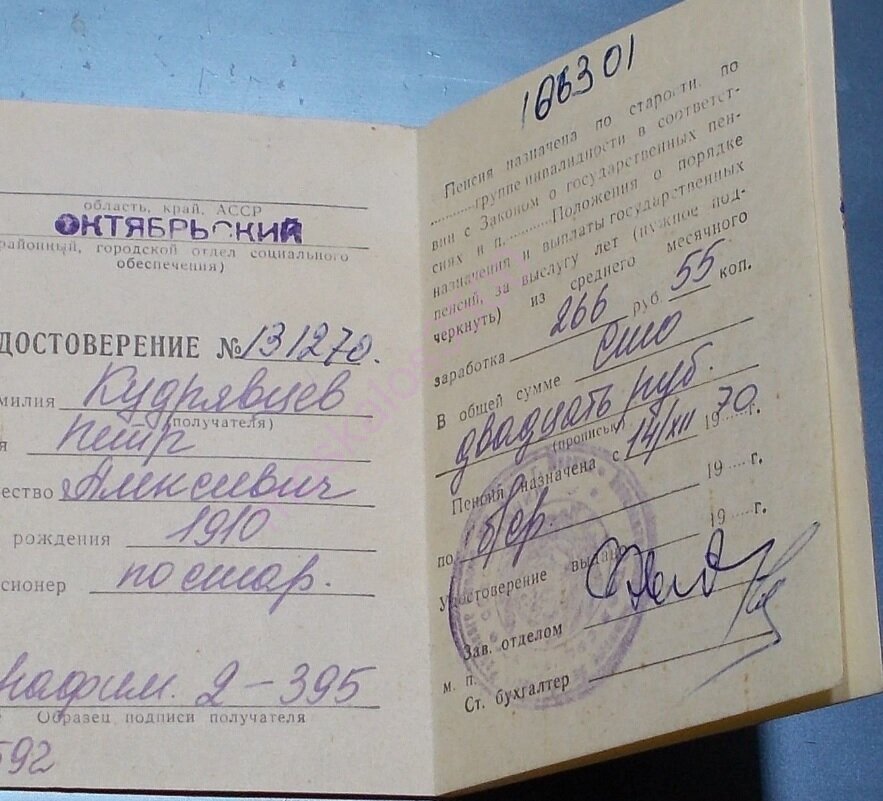 область, край, АССР
ОКТЯБРЬСКИЙ
районный, городской отдел социального
обеспечения)
ДОСТОВЕРЕНИЕ № 131270.
милия Кудрявцев
(получателя)
я Петр
ество Алексеевич
рождения 1910
сионер по стар.
2-395
Образец подписи получателя
592
166301
Пенсия назначена по старости, по
............группе инвалидности в соответст-
вии с Законом о государственных пен-
сиях и п............Положения о порядке
назначения и выплаты государственных
пенсий, за выслугу лет (нужное под-
черкнуть) из среднего месячного
заработка 266 руб. 55 коп.
В общей сумме Сто
двадцать руб.
(прописью)
Пенсия назначена с 14/XII 1970 г.
по б/ср. 19 г.
Удостоверение выдано 19 г.
Зав. отделом
м. п.
Ст. бухгалтер